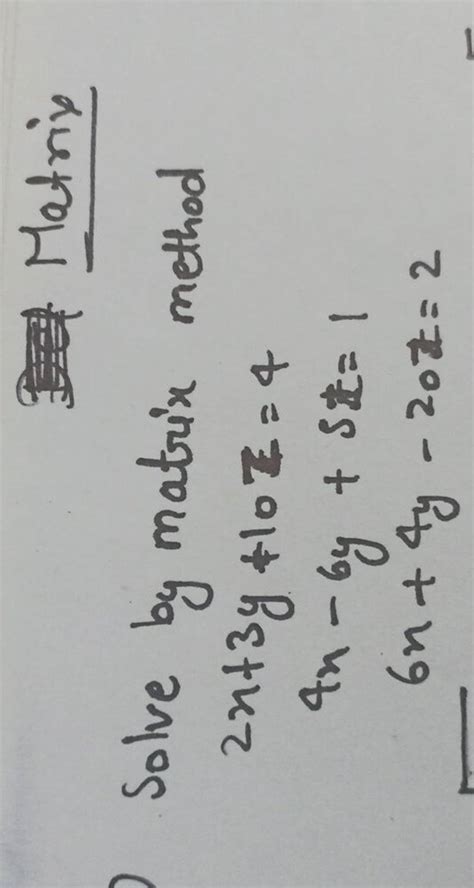 Matrix
Solve by matrix method
2x+3y+10z=4
4x-6y+5z=1
6x+4y-20z=2